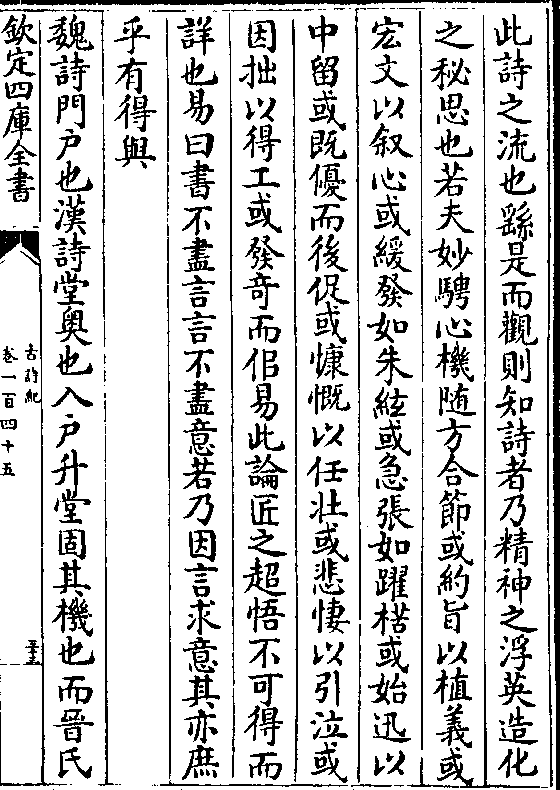 此詩之流也繇是而觀則知詩者乃精神之浮英造化
之秘思也若夫妙騁心機随方合節或約旨以植義或
宏文以叙心或緩發如朱絃或急張如躍楛或始迅以
中留或既優而後促或慷慨以任壮或悲悽以引泣或
因拙以得工或發奇而似易此論匠之超悟不可得而
詳也易曰書不盡言言不盡意若乃因言求意其亦庶
乎有得與
魏詩門户也漢詩堂奥也入户升堂固其機也而晉氏
欽定四庫全書
古詩紀
卷一百四十五